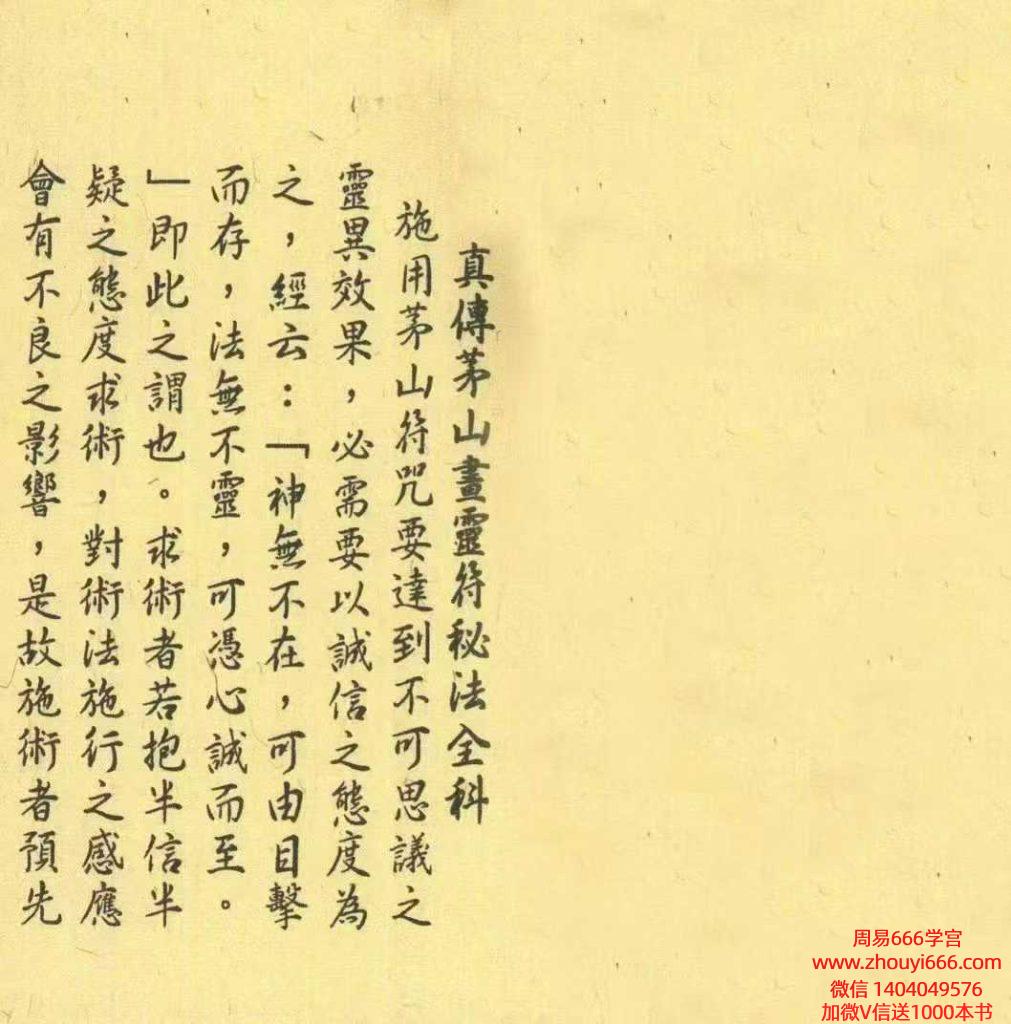 真傳茅山畫靈符秘法全科
施用茅山符咒要達到不可思議之
靈異效果，必需要以誠信之態度為
之，經云：「神無不在，可由目擊
而存，法無不靈，可憑心誠而至。
」即此之謂也。求術者若抱半信半
疑之態度求術，對術法施行之感應
會有不良之影響，是故施術者預先
周易666学宫
www.zhouyi666.com
微信 1404049576
加微V信送1000本书